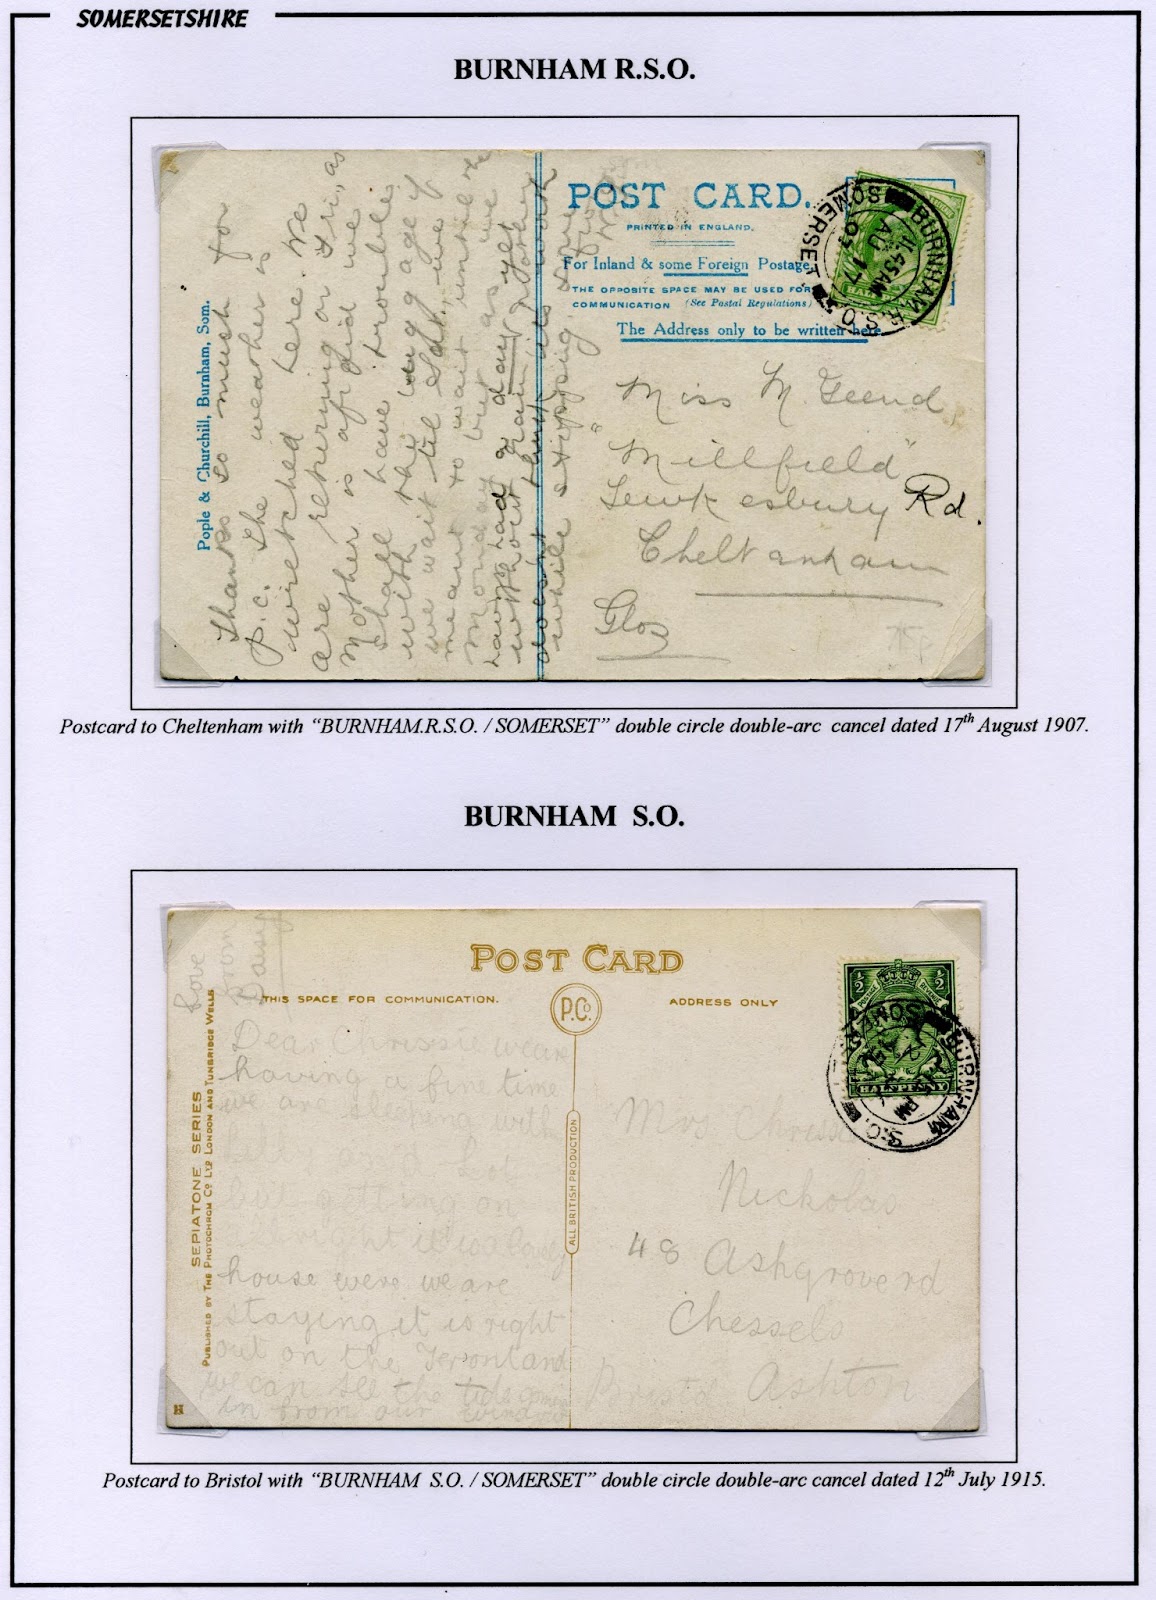 SOMERSETSHIRE
BURNHAM R.S.O.
POST CARD.
PRINTED IN ENGLAND.
For Inland & some Foreign Postage.
THE OPPOSITE SPACE MAY BE USED FOR
COMMUNICATION (See Postal Regulations)
The Address only to be written here
BURNHAM R.S.O.
SOMERSET
11.45AM
AU 17
07
HALFPENNY
Pople & Churchill, Burnham, Som.
Thanks so much for
p.c. The weather is
wretched here. We
are returning on Fri., as
Mother is afraid we
shall have trouble
with the luggage if
we wait till Sat. we
meant to wait until the
Monday but as we
havn't had a day yet
without rain
doesn't think its worth
while stopping
Miss M. Geend
"Millfield"
Tewkesbury Rd.
Cheltenham
Glos
Postcard to Cheltenham with "BURNHAM.R.S.O. / SOMERSET" double circle double-arc cancel dated 17th August 1907.
BURNHAM S.O.
POST CARD
THIS SPACE FOR COMMUNICATION.
P.Co.
ADDRESS ONLY
½ ½
POSTAGE REVENUE
HALFPENNY
BURNHAM S.O.
SEPIATONE SERIES
PUBLISHED BY THE PHOTOCHROM CO LTD LONDON AND TUNBRIDGE WELLS
ALL BRITISH PRODUCTION
Love
from
Daisy
Dear Chrissie we are
having a fine time
we are with
but getting on
all right it is a lovely
house were we are
staying it is right
out on the and
we can see the tide coming
in from our window
Mrs Chrissie
Nickolas
48 Ashgrove rd
Chessels
Bristol Ashton
Postcard to Bristol with "BURNHAM S.O. / SOMERSET" double circle double-arc cancel dated 12th July 1915.